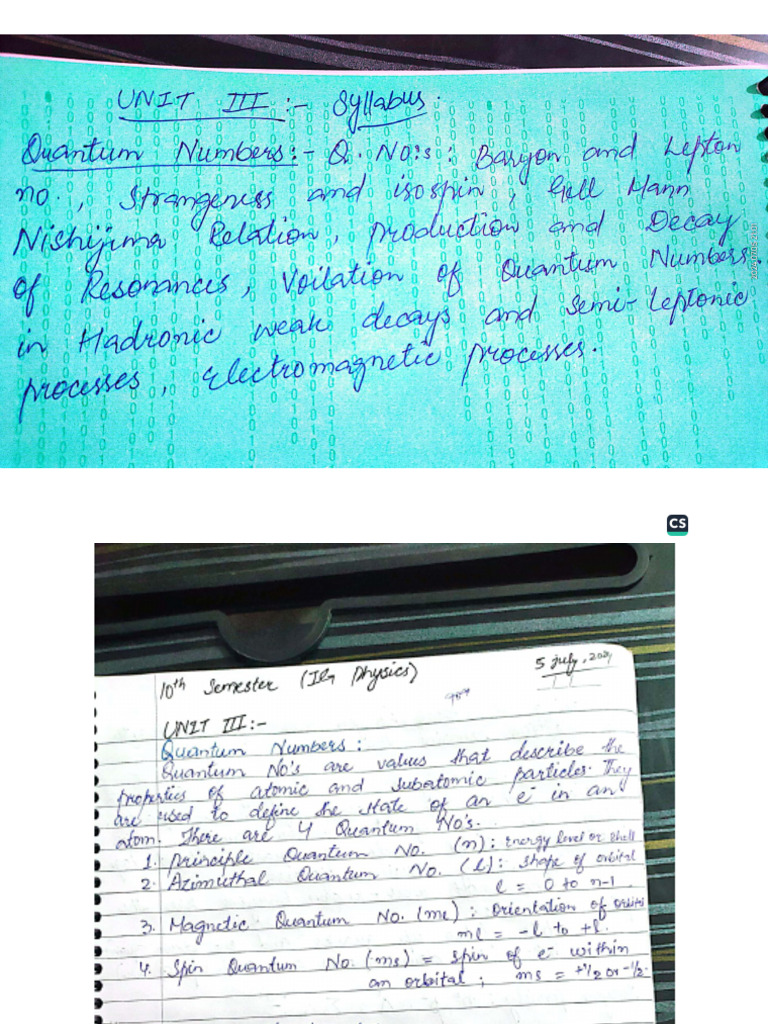 UNIT III :- Syllabus.
Quantum Numbers :- Q. No:s : Baryon and Lepton
no., Strangeness and isospin, Gell Mann
Nishijima Relation, production and Decay
of Resonances, Voilation of Quantum Numbers.
in Hadronic weak decays and semi-Leptonic
processes, Electromagnetic processes.
CS
10th Semester (IG Physics)
5 july, 2024
UNIT III :-
Quantum Numbers :
Quantum No's are values that describe the
properties of atomic and subatomic particles. They
are used to define the state of an e- in an
atom. There are 4 Quantum No's.
1. Principle Quantum No. (n) : Energy level or shell
2. Azimuthal Quantum No. (l) : shape of orbital
l = 0 to n-1.
3. Magnetic Quantum No. (ml) : orientation of orbital
ml = -l to +l.
4. Spin Quantum No. (ms) = spin of e- within
an orbital ; ms = +1/2 or -1/2.